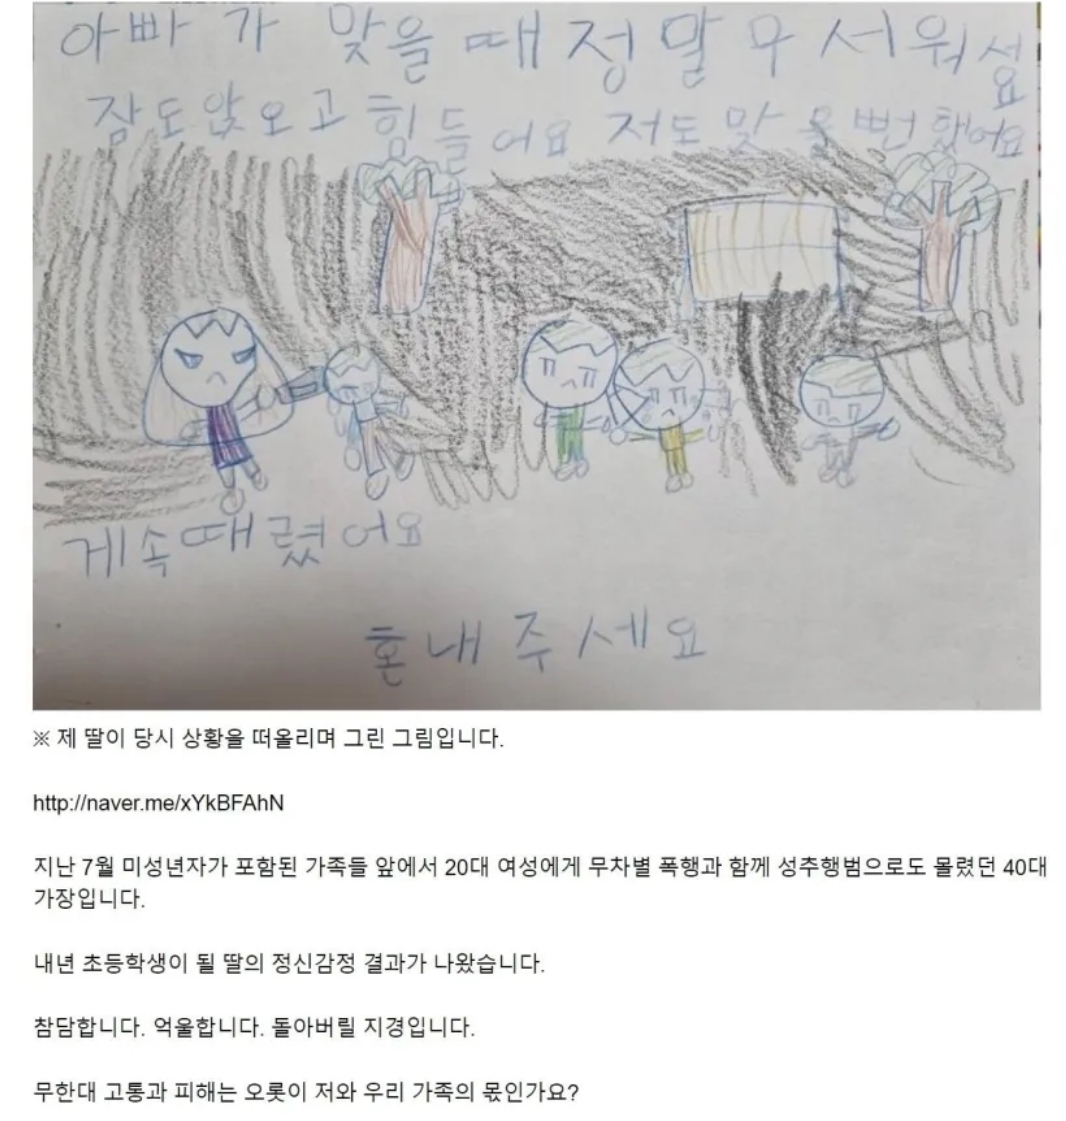 아빠가 맞을 때 정말 무서워섰요
잠도앉오고 힘들어요 저도 맞을뻔했어요
게속때렸어요
혼내주세요
※ 제 딸이 당시 상황을 떠올리며 그린 그림입니다.
http://naver.me/xYkBFAhN
지난 7월 미성년자가 포함된 가족들 앞에서 20대 여성에게 무차별 폭행과 함께 성추행범으로도 몰렸던 40대
가장입니다.
내년 초등학생이 될 딸의 정신감정 결과가 나왔습니다.
참담합니다. 억울합니다. 돌아버릴 지경입니다.
무한대 고통과 피해는 오롯이 저와 우리 가족의 몫인가요?